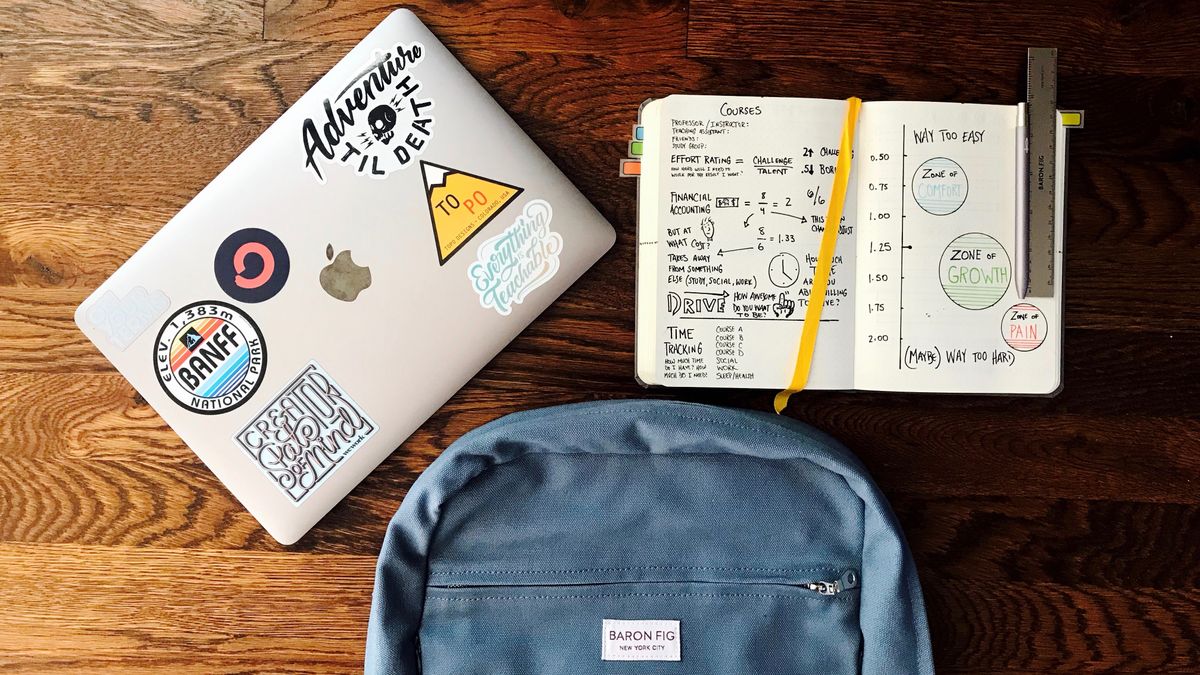 Adventure
'TIL DEATH
TO PO
TOPO DESIGNS • COLORADO, USA
Everything
is
Teachable
ELEV. 1,383m
BANFF
NATIONAL PARK
CREATOR
Pals
of Mind
wework
COURSES
PROFESSOR/INSTRUCTOR:
TEACHING ASSISTANT:
FRIENDS:
STUDY GROUP:
EFFORT RATING = CHALLENGE
TALENT
HOW HARD WILL I NEED TO
WORK FOR THE RESULT I WANT?
2↑
.5↓
FINANCIAL
ACCOUNTING
= 8
4
= 2
6/6
BUT AT
WHAT COST?
8
6
= 1.33
THIS
TAKES AWAY
FROM SOMETHING
ELSE (STUDY, SOCIAL, WORK)
HOW MUCH
DRIVE
HOW AWESOME
DO YOU WANT
TO BE?
TIME
TRACKING
HOW MUCH TIME
DO I HAVE? HOW
MUCH DO I NEED?
COURSE A
COURSE B
COURSE C
COURSE D
SOCIAL
WORK
SLEEP/HEALTH
WAY TOO EASY
0.50
0.75
1.00
1.25
1.50
1.75
2.00
ZONE OF
COMFORT
ZONE OF
GROWTH
ZONE OF
PAIN
(MAYBE) WAY TOO HARD
BARON FIG
BARON FIG
NEW YORK CITY